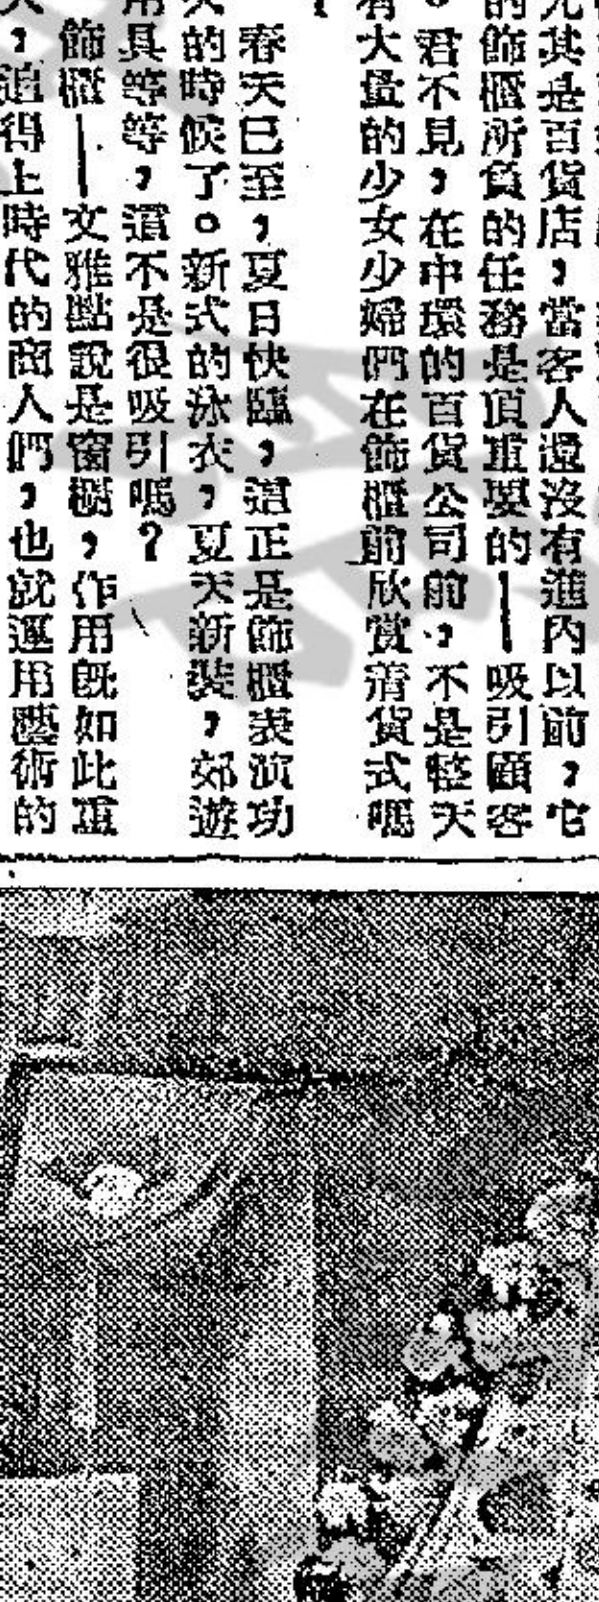 尤其是百貨店，當客人還沒有進內以前，它
的飾櫃所負的任務是頂重要的—吸引顧客
。君不見，在中環的百貨公司前，不是整天
有大量的少女少婦們在飾櫃前欣賞着貨式嗎
春天已至，夏日快臨，這正是飾櫃表演功
的時候了。新式的泳衣，夏天新裝，郊遊
用具等等，還不是很吸引嗎？
飾櫃—文雅點說是窗櫥，作用旣如此重
，追得上時代的商人們，也就運用藝術的